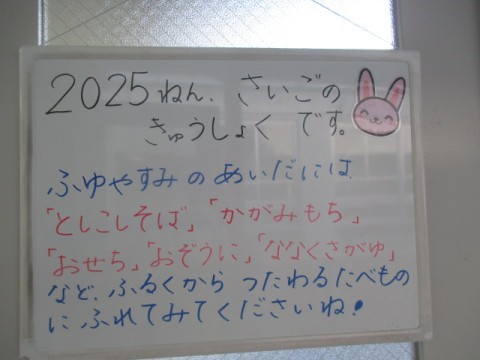 2025ねん、さいごの
きゅうしょく です。
ふゆやすみ の あいだには、
「としこしそば」「かがみもち」
「おせち」「おぞうに」「ななくさがゆ」
など、ふるくから つたわるたべもの
に ふれてみてくださいね!